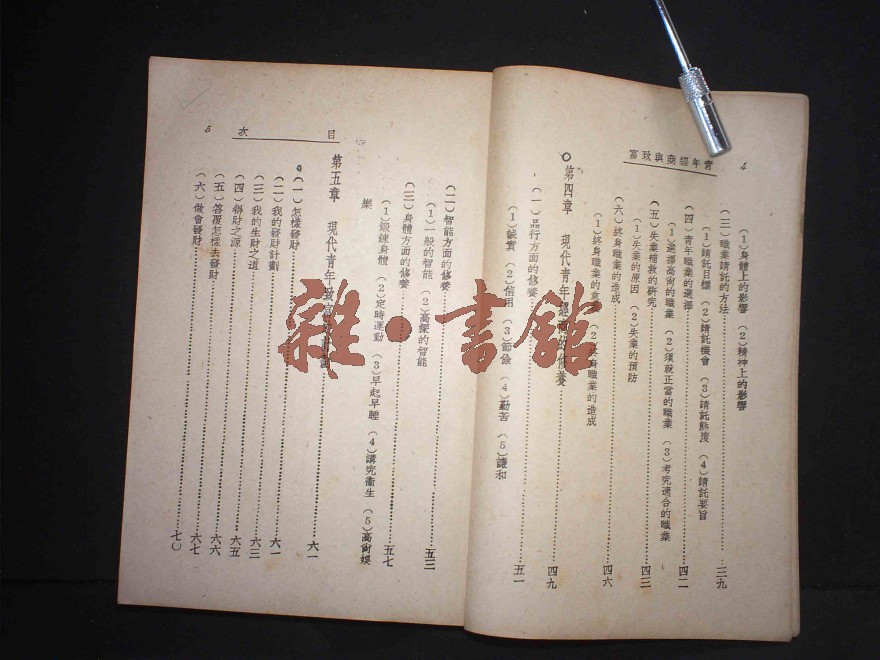 4
青年經商與致富
(1)身體上的影響 (2)精神上的影響
(三)職業請託的方法……三九
(1)請託目標 (2)請託機會 (3)請託態度 (4)請託要旨
(四)青年職業的選擇……四二
(1)選擇高尚的職業 (2)須就正當的職業 (3)考究適合的職業
(五)失業補救的研究……四三
(1)失業的原因 (2)失業的預防
(六)終身職業的造成……四六
(1)終身職業的意義 (2)終身職業的造成
第四章 現代青年經商的修養……四九
(一)品行方面的修養……五一
(1)誠實 (2)信用 (3)節儉 (4)勤苦 (5)謙和
目次 5
(二)智能方面的修養……五三
(1)一般的智能 (2)高深的智能
(三)身體方面的修養……五七
(1)鍛練身體 (2)定時運動 (3)早起早睡 (4)講究衞生 (5)高尙娛
樂
第五章 現代青年致富的計劃……六一
(一)怎樣發財……六一
(二)我的發財計劃……六三
(三)我的生財之道……六五
(四)辯財之源……六六
(五)答覆怎樣去發財……六七
(六)做會發財……七〇
雜·書館